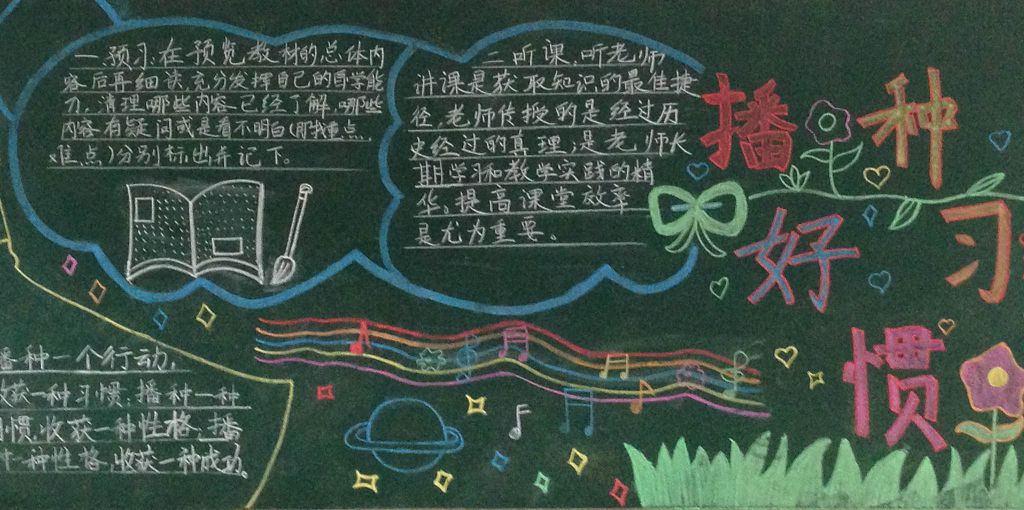 一、预习、在预览教材的总体内
容后再细读,充分发挥自己的自学能
力,清理哪些内容已经了解,哪些
内容有疑问或是看不明白(即找重点、
难点)分别标出并记下。
二、听课、听老师
讲课是获取知识的最佳捷
径,老师传授的是经过历
史经过的真理;是老师长
期学习和教学实践的精
华。提高课堂效率
是尤为重要。
播种
好习
惯
播种一个行动,
收获一种习惯、播种一种
习惯,收获一种性格、播
种一种性格,收获一种成功。